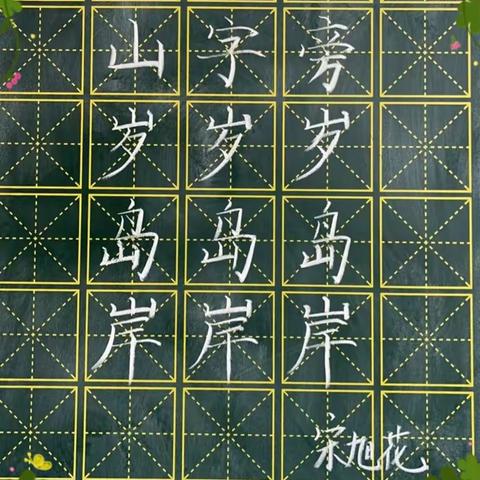 山字旁
岁岁岁
岛岛岛
岸岸岸
宋旭花